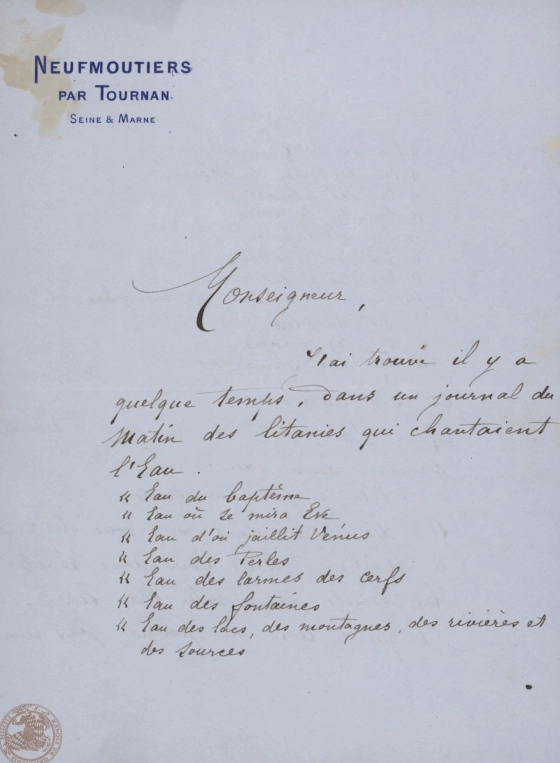 NEUFMOUTIERS
PAR TOURNAN.
SEINE & MARNE
Monseigneur,
J'ai trouvé il y a
quelque temps, dans un journal du
Matin des litanies qui chantaient
l'Eau.
« Eau du baptême
« Eau où se mira Eve
« Eau d'où jaillit Vénus
« Eau des Perles
« Eau des larmes des cerfs
« Eau des fontaines
« Eau des lacs, des montagnes, des rivières et
des sources